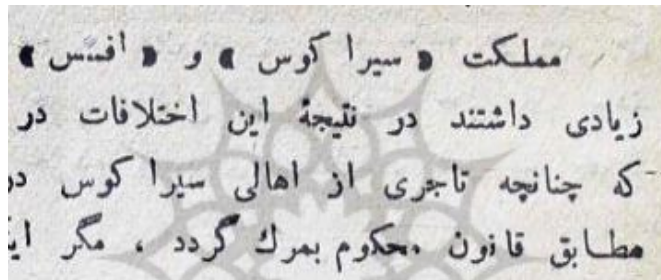 مملکت « سیرا کوس » و « افسس »
زیادی داشتند در نتیجهٔ این اختلافات در
که چنانچه تاجری از اهالی سیرا کوس در
مطابق قانون محکوم بمرك گردد ، مگر